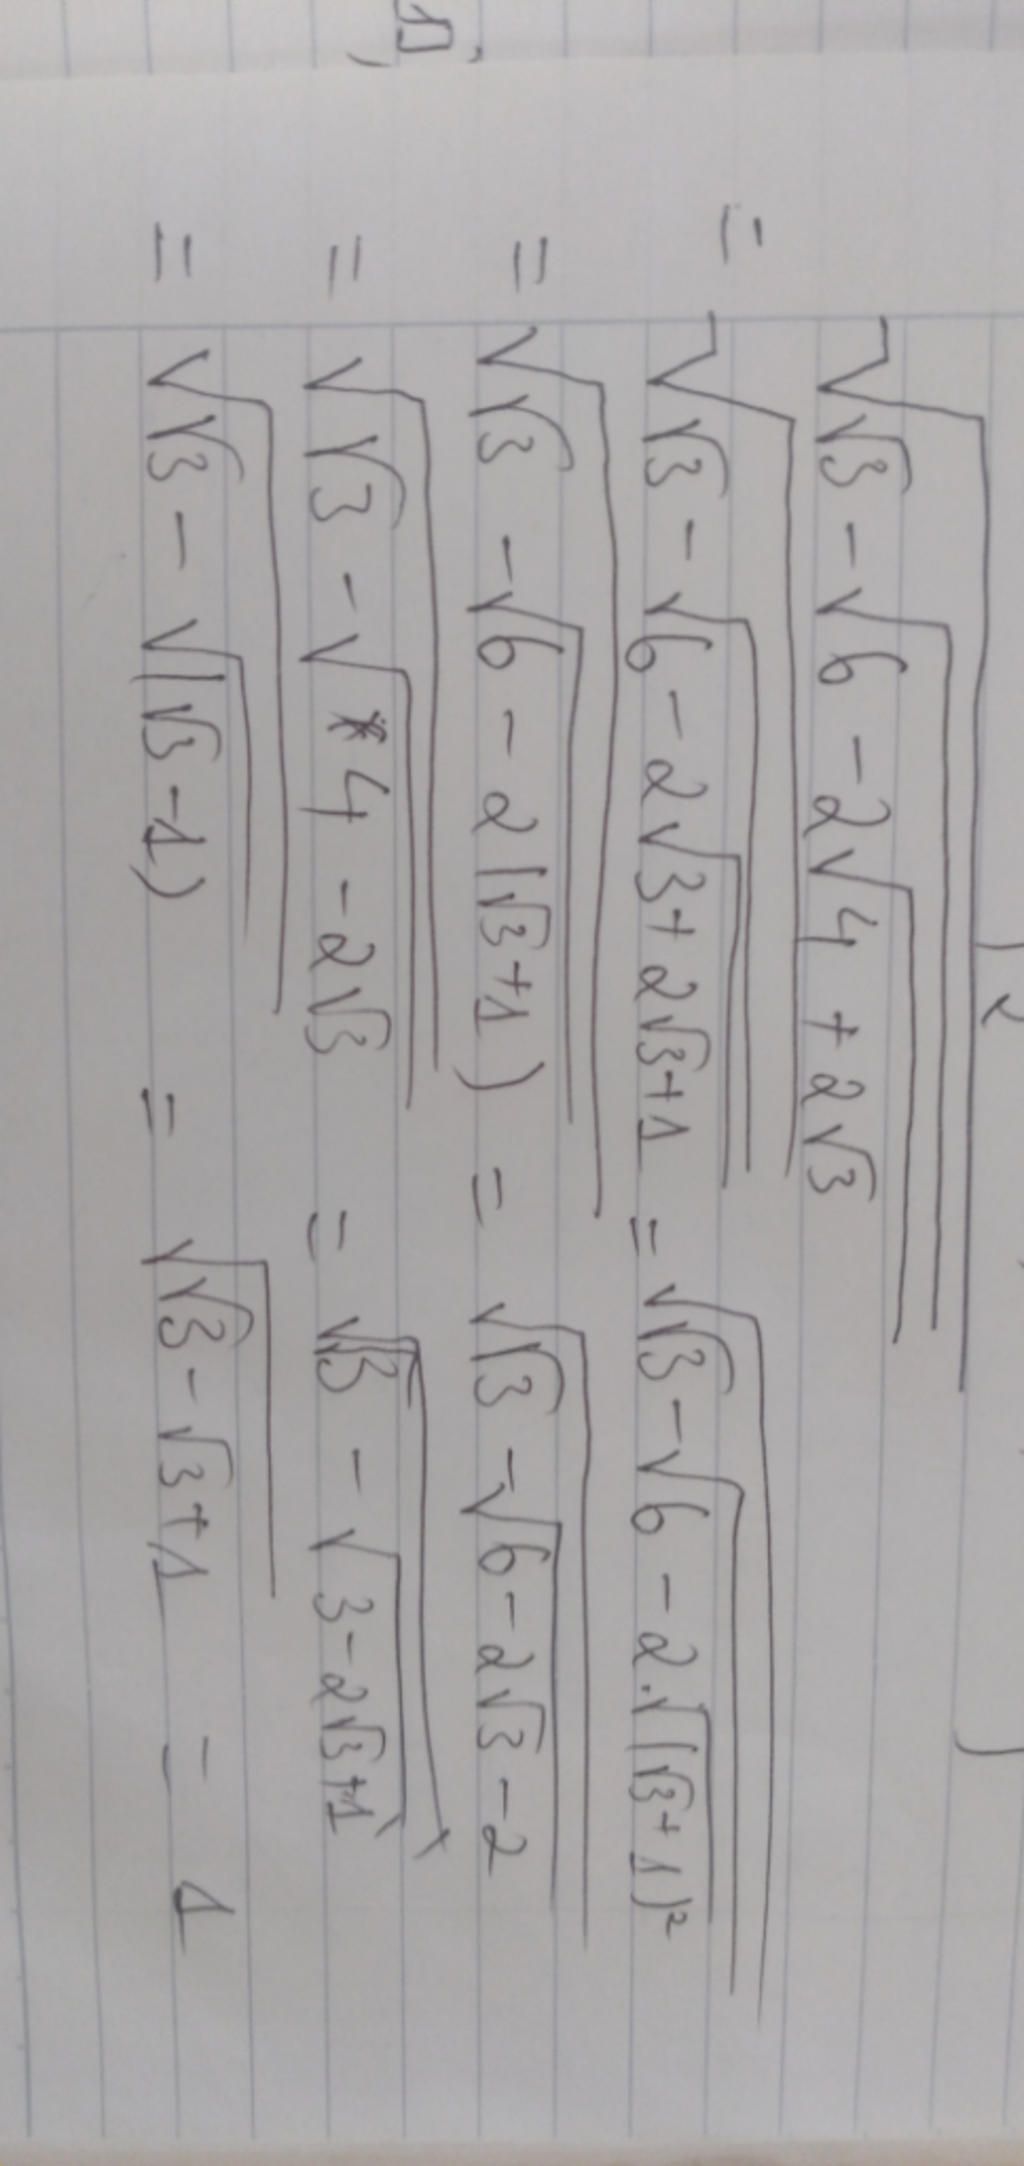 √(√3 - √(6 - 2√(4 + 2√3)))
= √(√3 - √(6 - 2√(3 + 2√3 + 1))) = √(√3 - √(6 - 2.√((√3 + 1)²)))
= √(√3 - √(6 - 2(√3 + 1))) = √(√3 - √(6 - 2√3 - 2))
= √(√3 - √(4 - 2√3)) = √(√3 - √(3 - 2√3 + 1))
= √(√3 - √((√3 - 1))) = √(√3 - √3 + 1) = 1